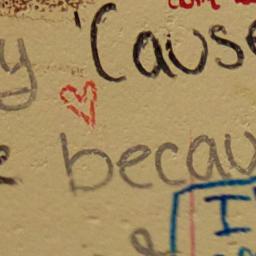 y 'Cause
e becau
I'